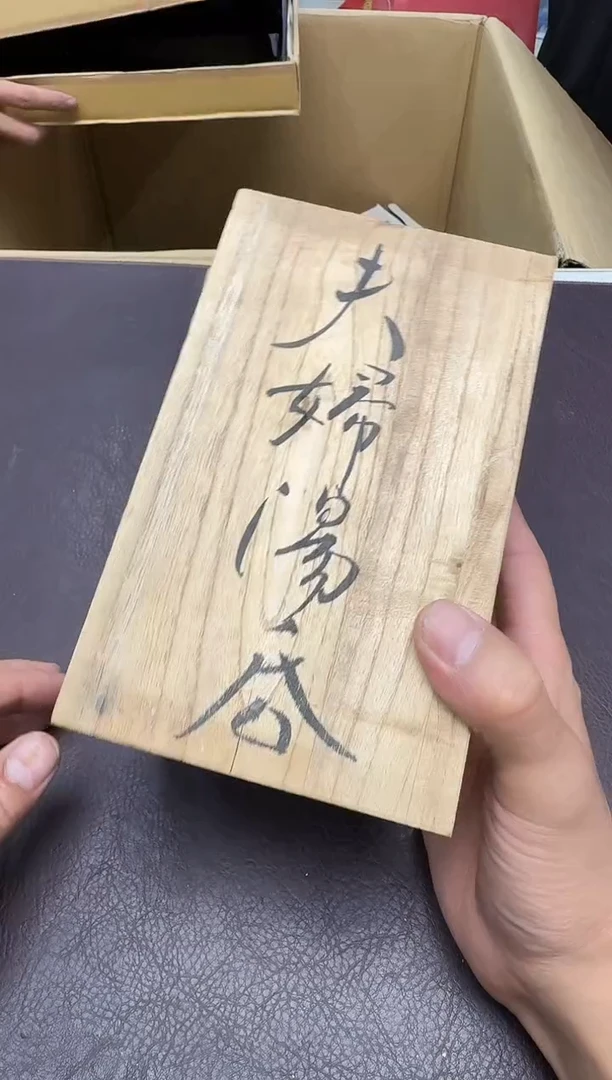 夫婦湯呑